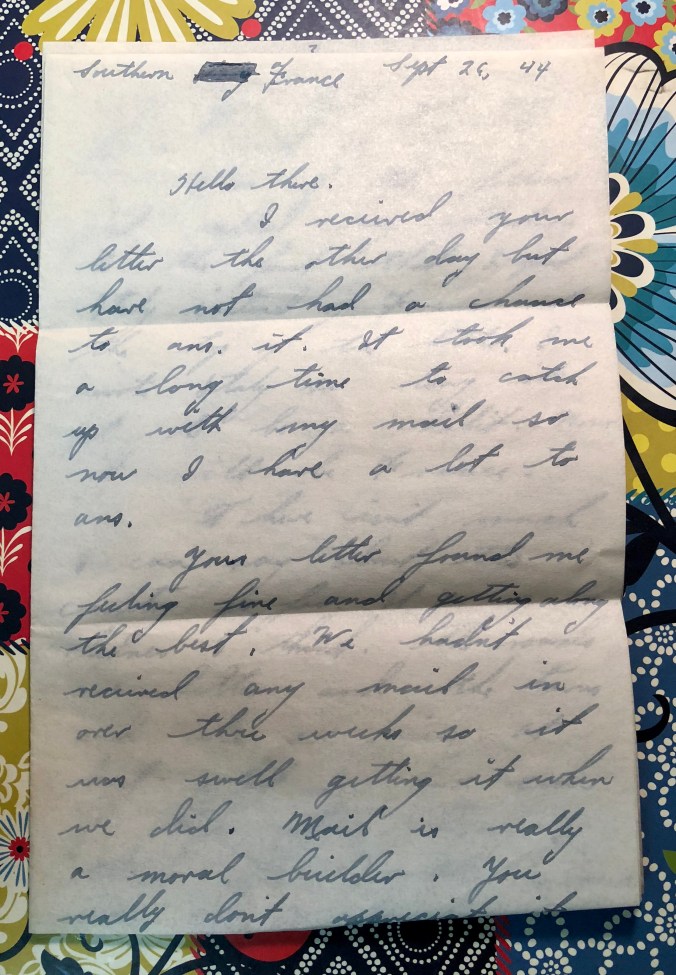 Southern France Sept 26, 44
Hello there.
I recieved your
letter the other day but
have not had a chance
to ans. it. It took me
a long time to catch
up with my mail so
now I have a lot to
ans.
Your letter found me
feeling fine and getting along
the best. We hadn't
recieved any mail in
over three weeks so it
was swell getting it when
we did. Mail is really
a moral builder. You
really don't appreciate it